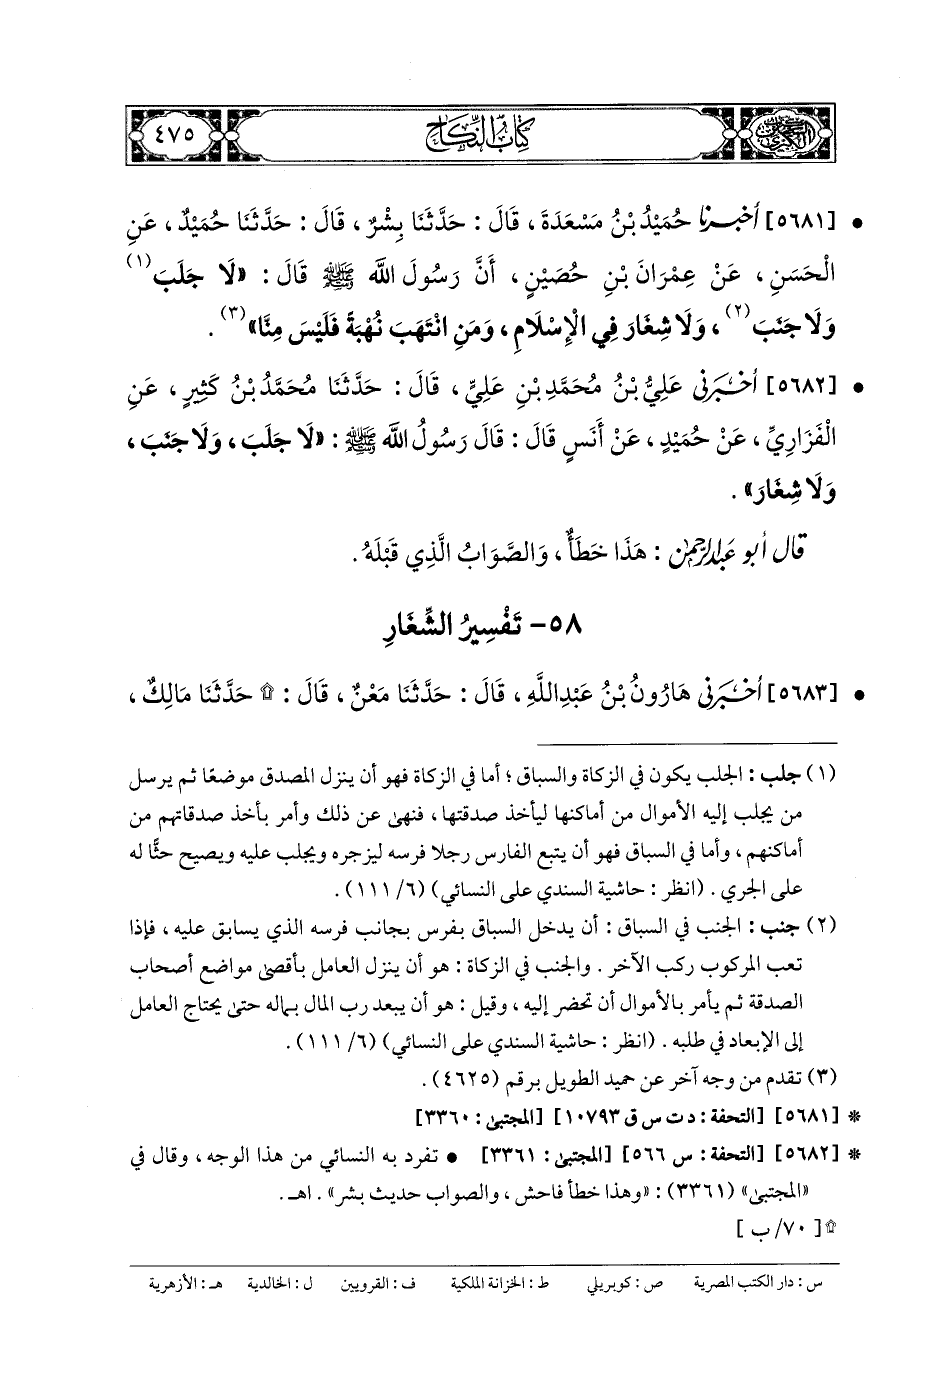 السنن الكبرى
كتاب النكاح
٤٧٥
• [٥٦٨١] أَخْبَرَنَا حُمَيْدُ بْنُ مَسْعَدَةَ، قَالَ: حَدَّثَنَا بِشْرٌ، قَالَ: حَدَّثَنَا حُمَيْدٌ، عَنِ
الْحَسَنِ، عَنْ عِمْرَانَ بْنِ حُصَيْنٍ، أَنَّ رَسُولَ اللَّه ﷺ قَالَ: «لَا جَلَبَ(١)
وَلَا جَنَبَ(٢)، وَلَا شِغَارَ فِي الْإِسْلَامِ، وَمَنِ انْتَهَبَ نُهْبَةً فَلَيْسَ مِنَّا»(٣).
• [٥٦٨٢] أَخْبَرَنِي عَلِيُّ بْنُ مُحَمَّدِ بْنِ عَلِيٍّ، قَالَ: حَدَّثَنَا مُحَمَّدُ بْنُ كَثِيرٍ، عَنِ
الْفَزَارِيِّ، عَنْ حُمَيْدٍ، عَنْ أَنَسٍ قَالَ: قَالَ رَسُولُ اللَّه ﷺ: «لَا جَلَبَ، وَلَا جَنَبَ،
وَلَا شِغَارَ».
قال أبو عبد الرحمن: هَذَا خَطَأٌ، وَالصَّوَابُ الَّذِي قَبْلَهُ.
٥٨- تَفْسِيرُ الشِّغَارِ
• [٥٦٨٣] أَخْبَرَنِي هَارُونُ بْنُ عَبْدِاللَّهِ، قَالَ: حَدَّثَنَا مَعْنٌ، قَالَ: ۩ حَدَّثَنَا مَالِكٌ،
(١) جلب: الجلب يكون في الزكاة والسباق؛ أما في الزكاة فهو أن ينزل المصدق موضعًا ثم يرسل
من يجلب إليه الأموال من أماكنها ليأخذ صدقتها، فنهى عن ذلك وأمر بأخذ صدقاتهم من
أماكنهم، وأما في السباق فهو أن يتبع الفارس رجلا فرسه ليزجره ويجلب عليه ويصيح حثًّا له
على الجري. (انظر: حاشية السندي على النسائي) (٦/ ١١١).
(٢) جنب: الجنب في السباق: أن يدخل السباق بفرس بجانب فرسه الذي يسابق عليه، فإذا
تعب المركوب ركب الآخر. والجنب في الزكاة: هو أن ينزل العامل بأقصى مواضع أصحاب
الصدقة ثم يأمر بالأموال أن تحضر إليه، وقيل: هو أن يبعد رب المال بماله حتى يحتاج العامل
إلى الإبعاد في طلبه. (انظر: حاشية السندي على النسائي) (٦/ ١١١).
(٣) تقدم من وجه آخر عن حميد الطويل برقم (٤٦٢٥).
* [٥٦٨١] [التحفة: د ت س ق ١٠٧٩٣] [المجتبى: ٣٣٦٠]
* [٥٦٨٢] [التحفة: س ٥٦٦] [المجتبى: ٣٣٦١] • تفرد به النسائي من هذا الوجه، وقال في
«المجتبى» (٣٣٦١): «وهذا خطأ فاحش، والصواب حديث بشر». اهـ.
۩ [٧٠/ ب]
س: دار الكتب المصرية ص: كوبريلي ط: الخزانة الملكية ف: القرويين ل: الخالدية هـ: الأزهرية